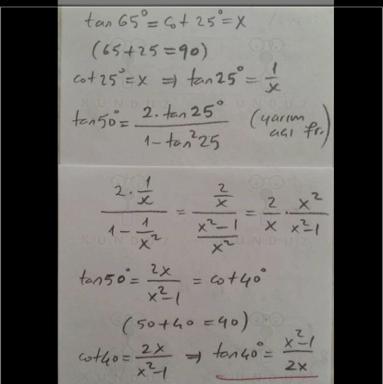 tan65°=cot25°=x
(65+25=90)
cot25°=x ⇒ tan25°=1/x
tan50°=2.tan25°/1-tan²25 (yarım açı fr.)
2.1/x / 1-1/x² = 2/x / x²-1/x² = 2/x . x²/x²-1
tan50°=2x/x²-1=cot40°
(50+40=90)
cot40=2x/x²-1 ⇒ tan40°=x²-1/2x